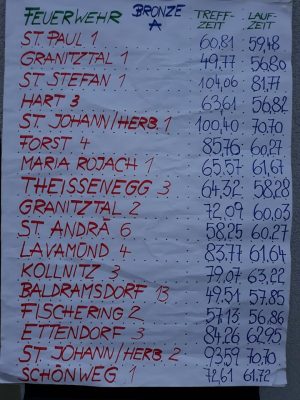 FEUERWEHR BRONZE A TREFF-ZEIT LAUF-ZEIT
ST. PAUL 1 60,81 59,48
GRANITZTAL 1 49,77 56,80
ST. STEFAN 1 104,06 81,77
HART 3 63,61 56,82
ST. JOHANN/HERB. 1 100,40 70,70
FORST 4 85,76 60,27
MARIA ROJACH 1 65,57 61,67
THEISSENEGG 3 64,32 58,28
GRANITZTAL 2 72,09 60,03
ST. ANDRÄ 6 58,25 60,27
LAVAMÜND 4 83,77 61,64
KOLLNITZ 3 79,07 63,22
BALDRAMSDORF 13 49,51 57,85
FISCHERING 2 57,13 56,86
ETTENDORF 3 84,26 62,95
ST. JOHANN/HERB 2 93,59 70,70
SCHÖNWEG 1 72,61 61,72